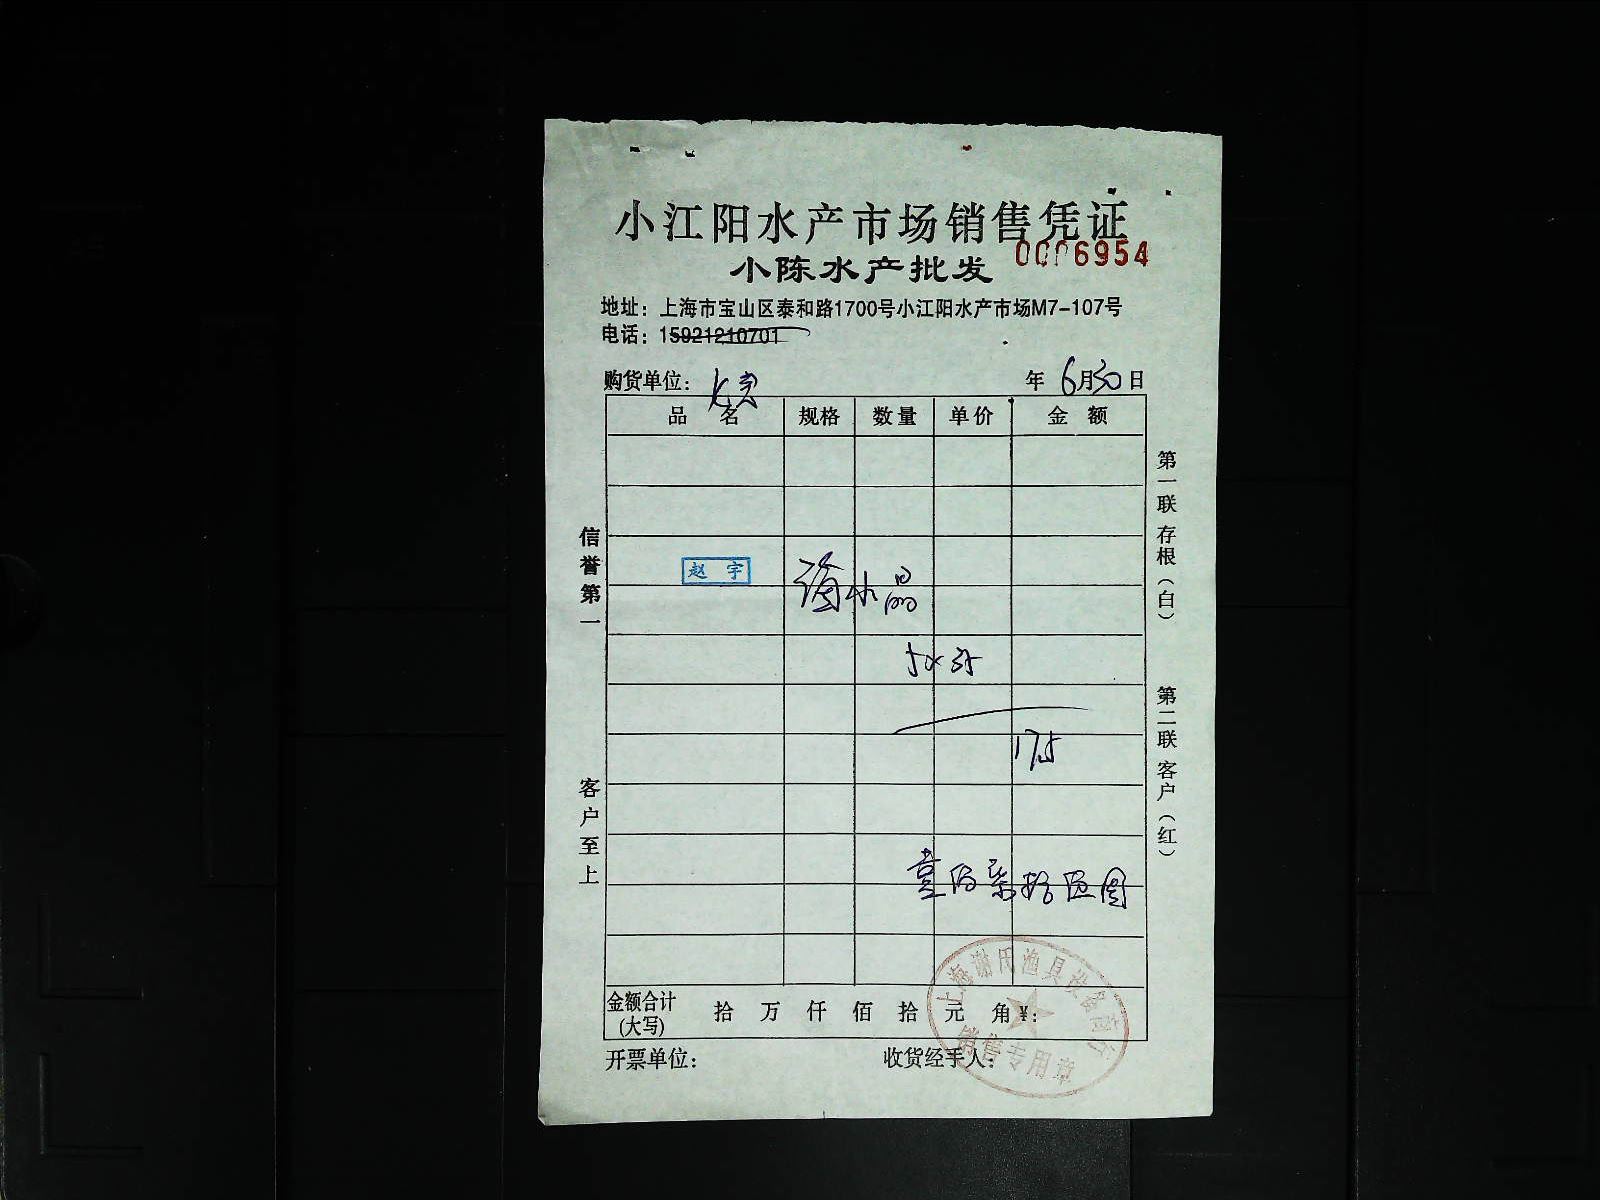 小江阳水产市场销售凭证
0006954
小陈水产批发
地址：上海市宝山区泰和路1700号小江阳水产市场M7-107号
电话：15921210701
购货单位： 年 6月30日
品 名 规格 数量 单价 金 额
赵 宇
海水晶
5×35
175
壹佰柒拾伍圆
金额合计(大写) 拾 万 仟 佰 拾 元 角 ¥：
开票单位： 收货经手人：
信誉第一 客户至上
第一联 存根（白） 第二联 客户（红）
上海谢氏渔具设备商行
销售专用章